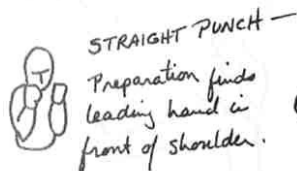 STRAIGHT PUNCH —
Preparation finds
leading hand in
front of shoulder.